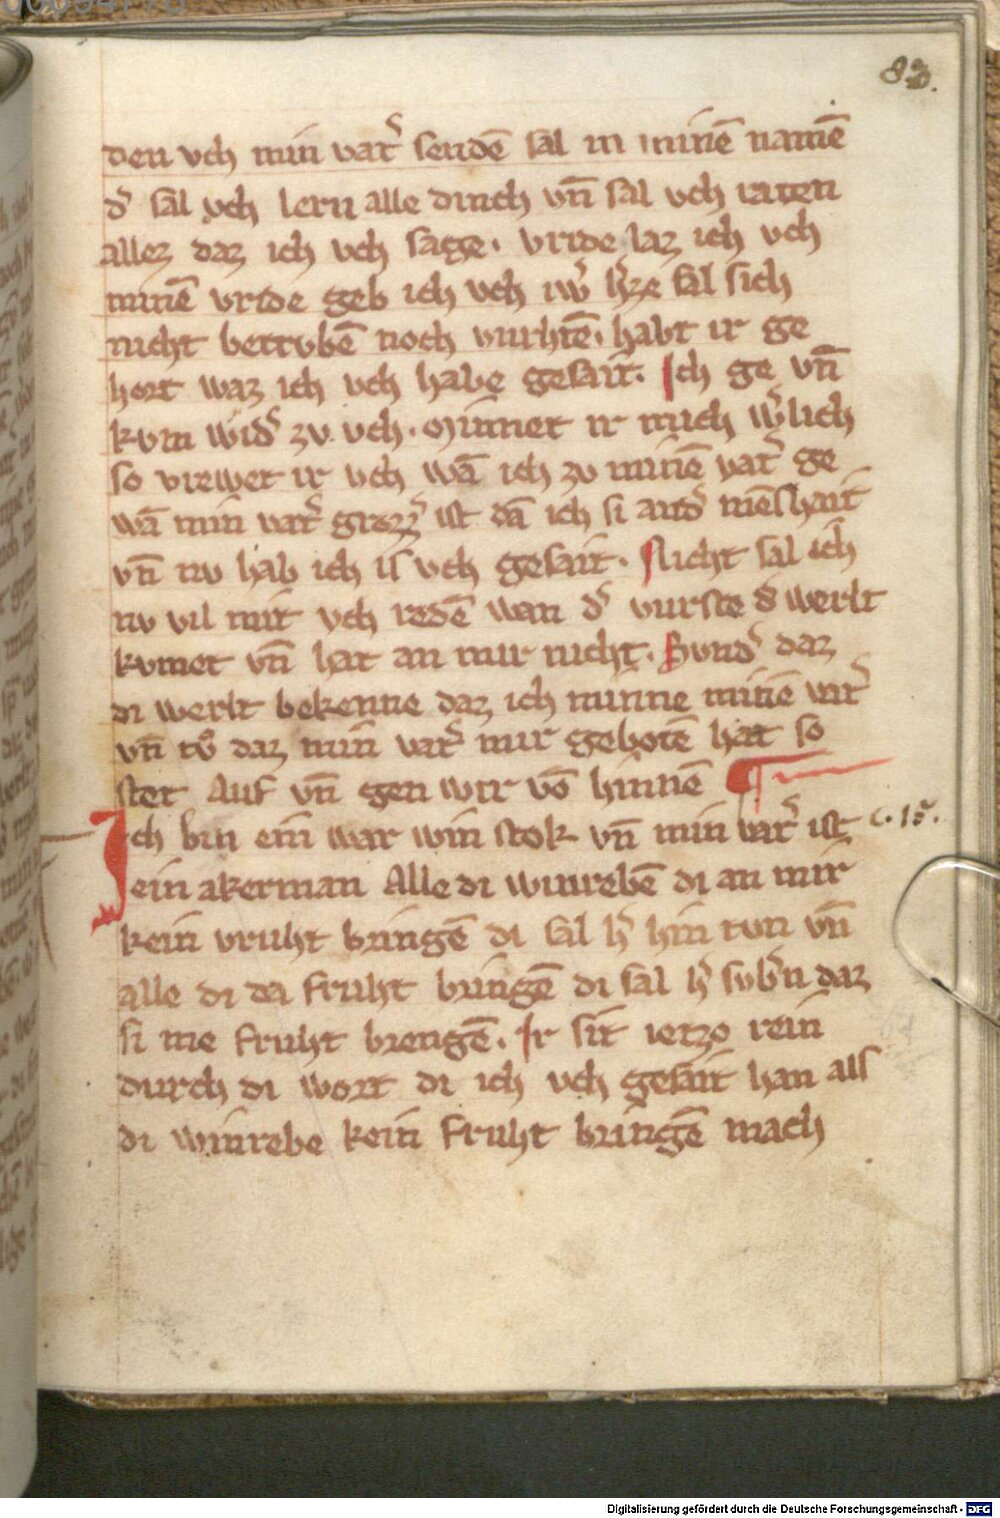 83.
den vch min vat͛ sendē sal in minē namē
d͛ sal vch lern alle dinch vn̄ sal vch raten
allez daz ich vch sage. vride laz ich vch
minē vride geb ich vch iw͛ h͛ze sal sich
nicht betrvbē noch vurhtē. habt ir ge
hort waz ich vch habe gesait. Ich ge vn̄
kvm wid͛ zv vch. Minnet ir mich w͛lich
so vrewet ir vch wā ich zv minē vat͛ ge
wā min vat͛ grozz͛ ist dā ich si and͛ mēshait
vn̄ nv hab ich is vch gesait. Nicht sal ich
nv vil mit vch redē wan d͛ vurste d͛ werlt
kvmet vn̄ hat an mir nicht. Svnd͛ daz
di werlt bekenne daz ich minne minē vat͛
vn̄ tv̊ daz min vat͛ mir gebotē hat so
stet Auf vn̄ gen wir vō hinnē
Ich bin ein war win stok vn̄ min vat͛ ist
c. 15.
ein akerman Alle di winrebē di an mir
kein vruht bringē di sal h͛ hin tvn vn̄
alle di da fruht bringē di sal h͛ svb͛n daz
si me fruht brengē. Ir sit ietzo rein
durch di wort di ich vch gesait han als
di winrebe kein fruht bringē mach
Digitalisierung gefördert durch die Deutsche Forschungsgemeinschaft - DFG